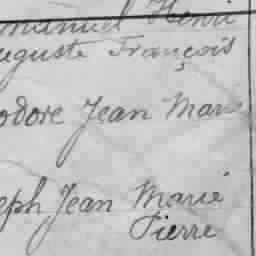 manuel Henri
uguste François
odore Jean Marie
eph Jean Marie
Pierre